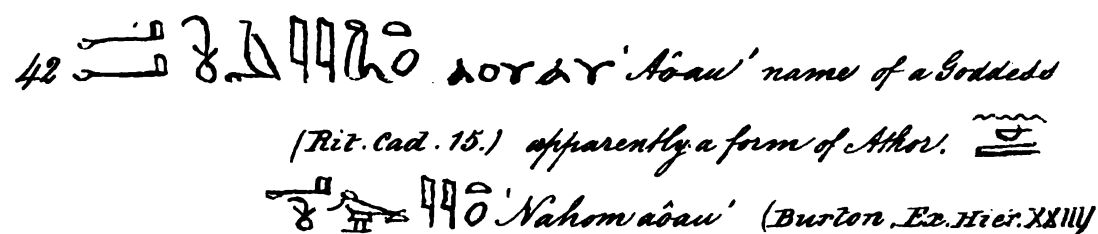 42 ⲁⲟⲩⲁⲩ 'Aôau' name of a Goddess
(Rit. Cad. 15.) apparently a form of Athor.
'Nahom aôau' (Burton, Ex. Hier. XXIII)